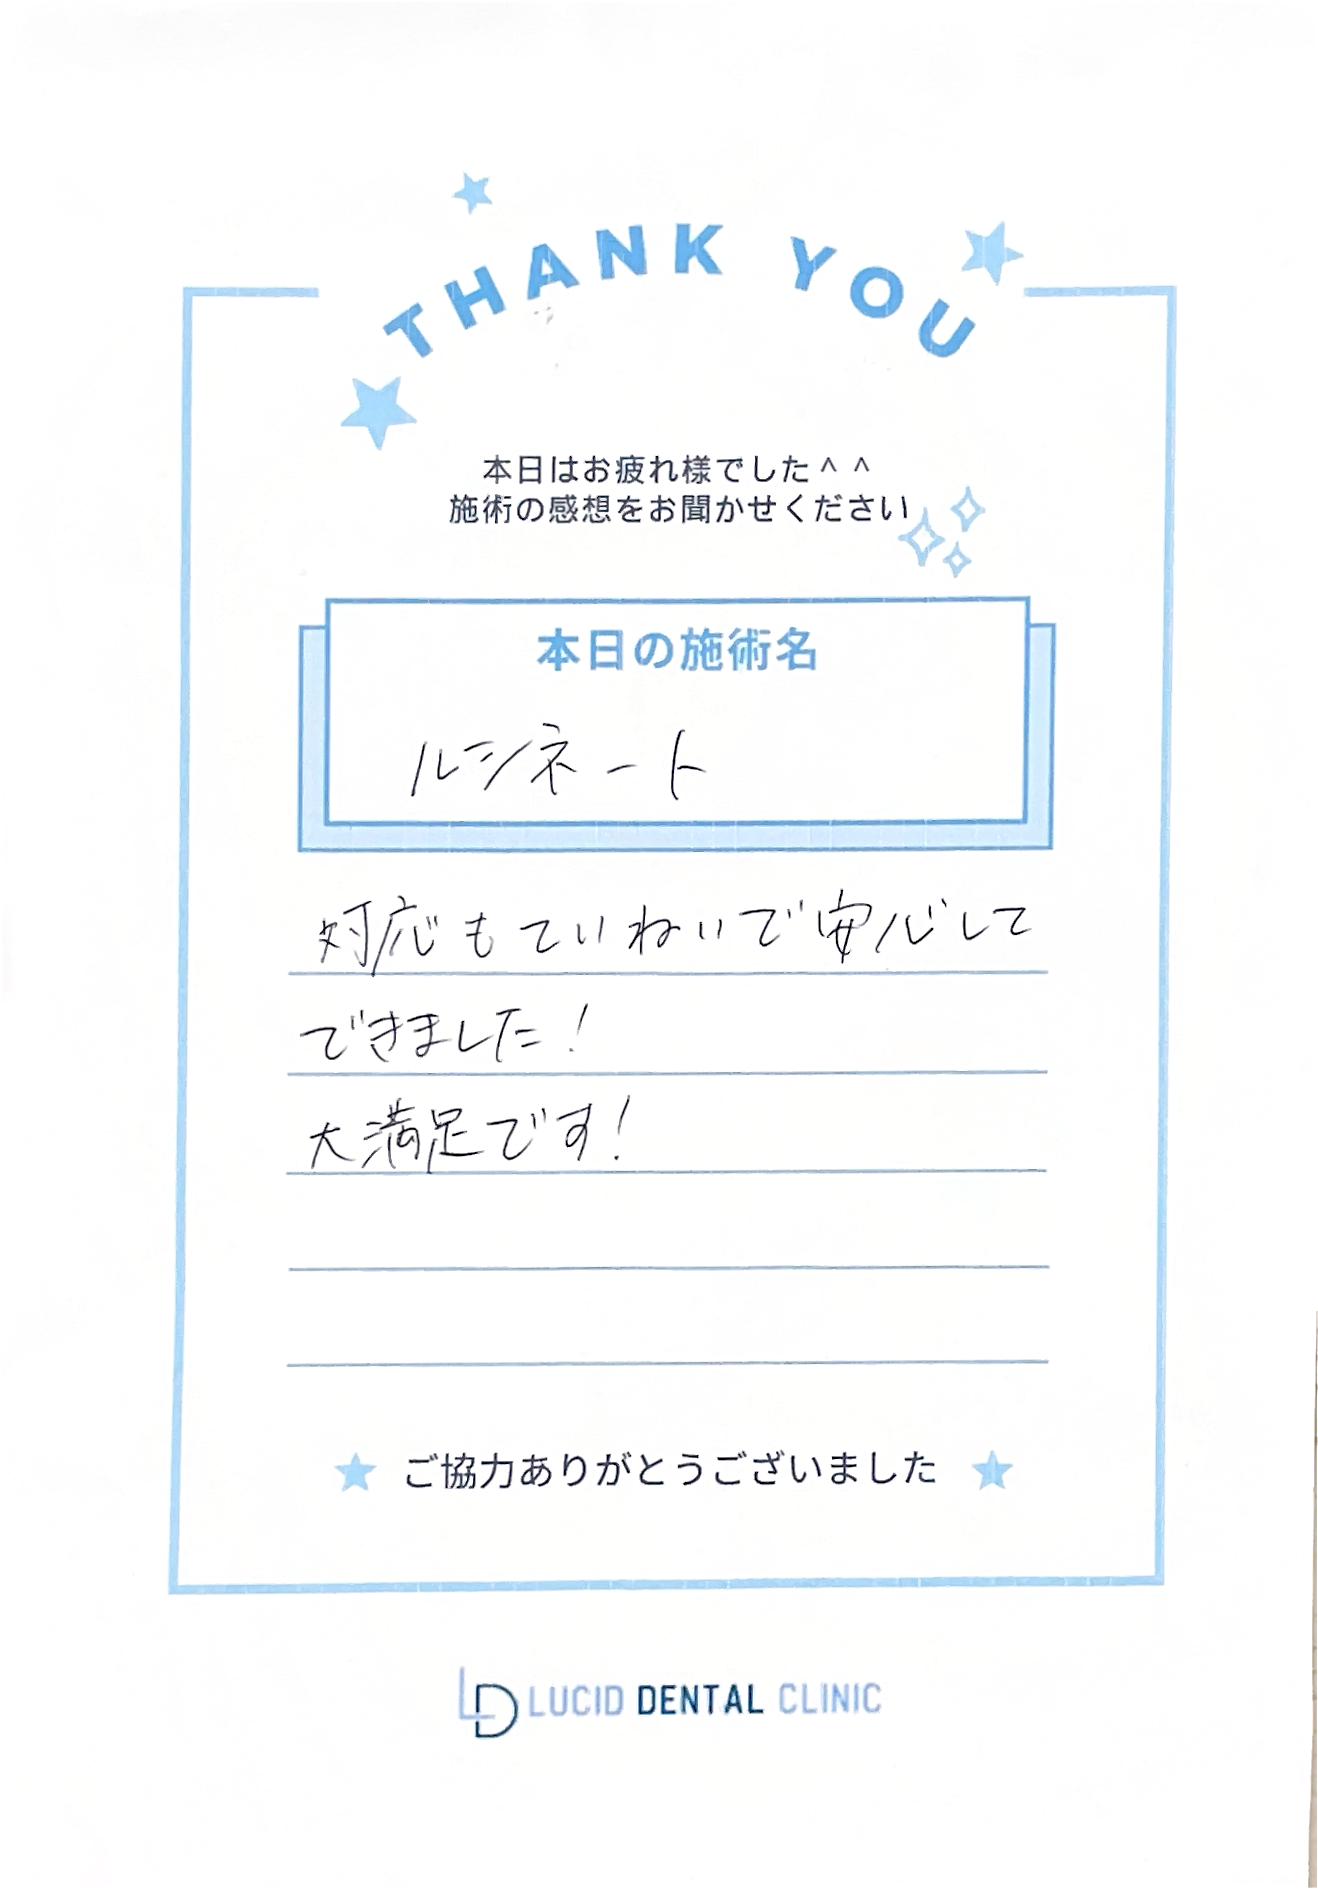 THANK YOU
本日はお疲れ様でした^ ^
施術の感想をお聞かせください
本日の施術名
ルシネート
対応もていねいで安心して
できました!
大満足です!
ご協力ありがとうございました
LD LUCID DENTAL CLINIC